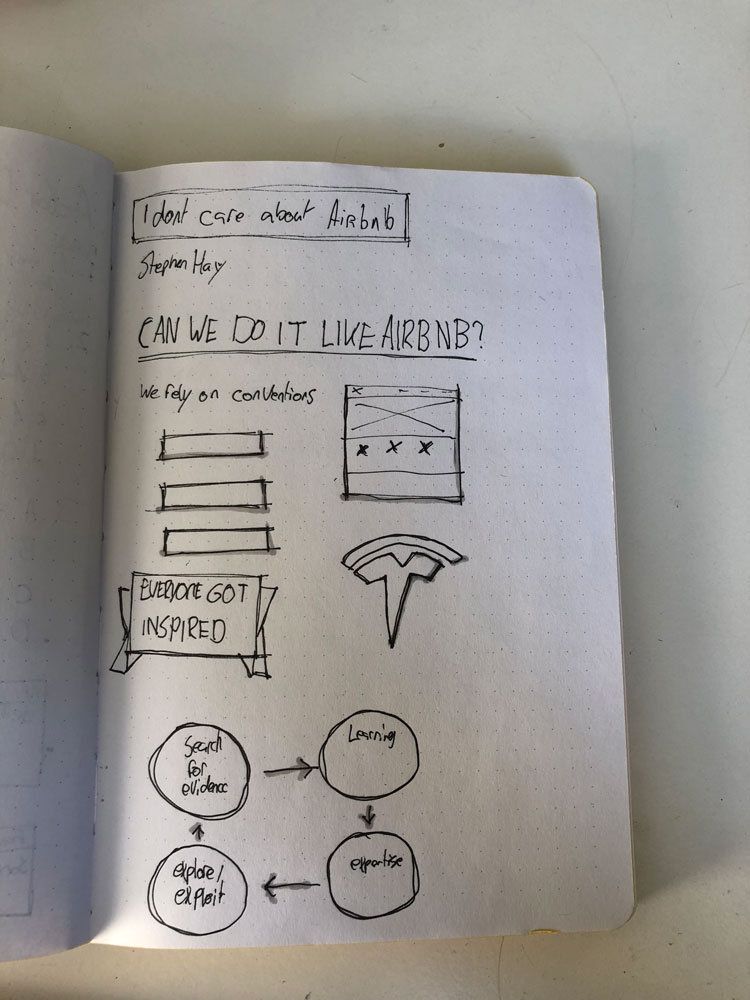 I dont care about Airbnb
Stephen Hay
CAN WE DO IT LIKE AIRBNB?
We rely on conventions
EVERYONE GOT
INSPIRED
Search
for
evidence
Learning
expertise
explore/
exploit